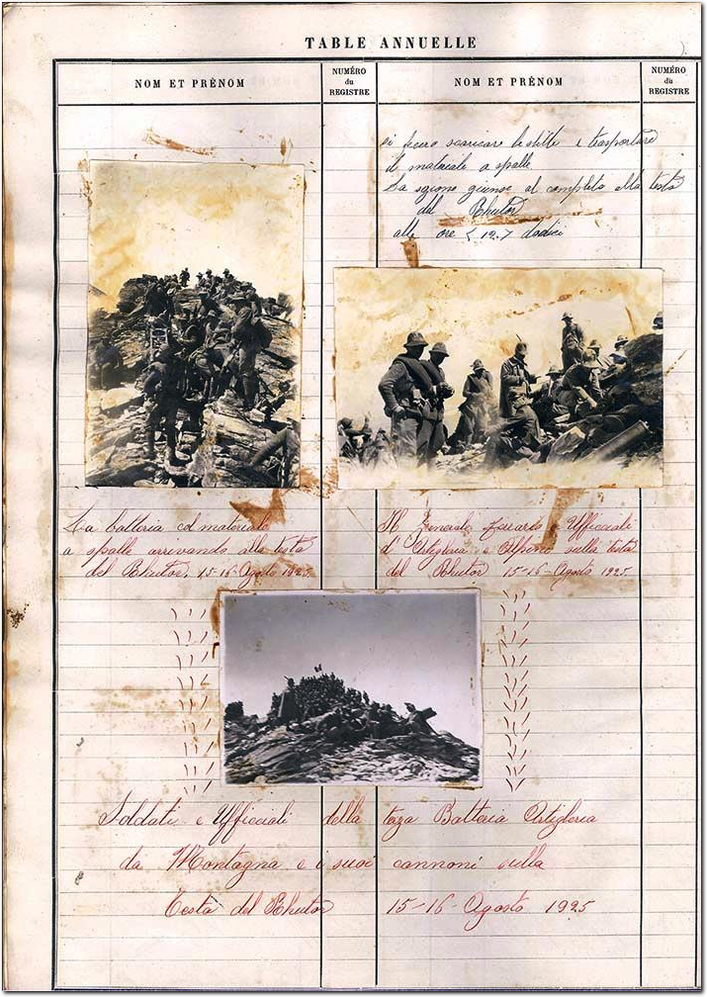 TABLE ANNUELLE
NOM ET PRÉNOM
NUMÉRO
du
REGISTRE
NOM ET PRÉNOM
NUMÉRO
du
REGISTRE
si fecero scaricare le slitte e trasportare
il materiale a spalle
del Rhutor
alle ore < 12 > dodici
La batteria col materiale
a spalle arrivando alla testa
del Rhutor, 15-16-Agosto 1925
Il Generale e Ufficiali
d'Artiglieria e Alpini sulla testa
del Rhutor 15-16-Agosto 1925
Soldati e Ufficiali della Batteria Artiglieria
da Montagna e i suoi cannoni sulla
Testa del Rhutor 15-16-Agosto 1925